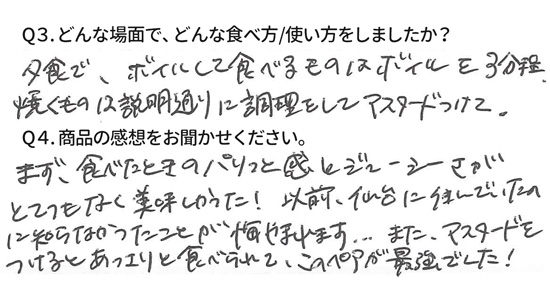 Q3.どんな場面で、どんな食べ方/使い方をしましたか？
夕食で、ボイルして食べるものはボイルを3分程
焼くものは説明通りに調理をしてマスタードつけて。
Q4.商品の感想をお聞かせください。
まず、食べたときのパリっと感とジューシーさが
とてつもなく美味しかった！以前、仙台に住んでいたの
に知らなかったことが悔やまれます…また、マスタードを
つけるとあっさりと食べられて、このペアが最強でした！